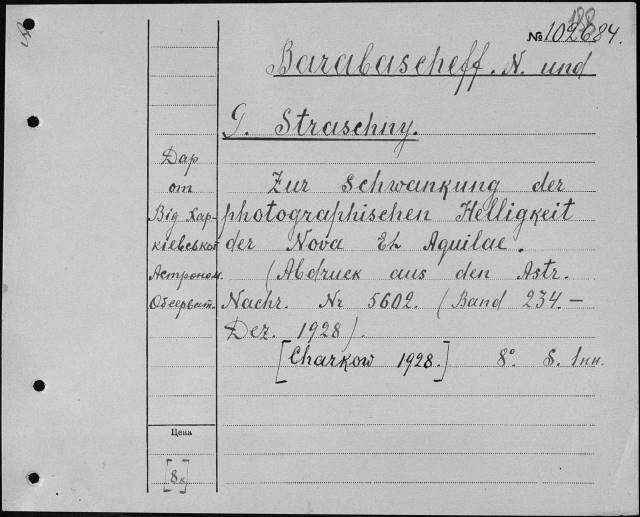 188
№ 102684.
Barabascheff. N. und
G. Straschny.
Дар
от
Від Хар-
кіевської
Астроном.
Обсерват.
Zur Schwankung der
photographischen Helligkeit
der Nova Eh Aquilae.
(Abdruck aus den Astr.
Nachr. Nr 5602. (Band 234.—
Dez. 1928).
[Charkow 1928.] 8° S. 1нн.
Цена
[8к]